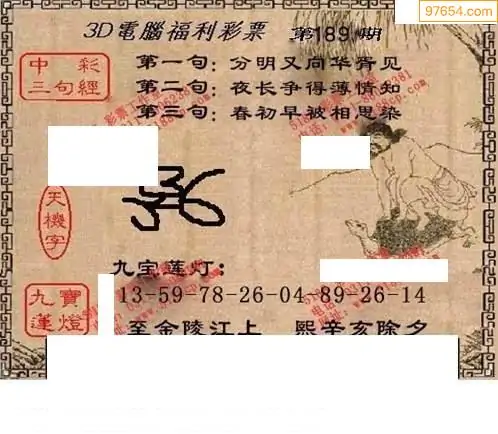 97654.com
3D電腦福利彩票 第189期
中彩
三句經
第一句:分明又向华胥见
第二句:夜长争得薄情知
第三句:春初早被相思染
天機字
九宝莲灯:
九寶
蓮燈
13-59-78-26-04-89-26-14
至金陵江上 熙辛亥除夕